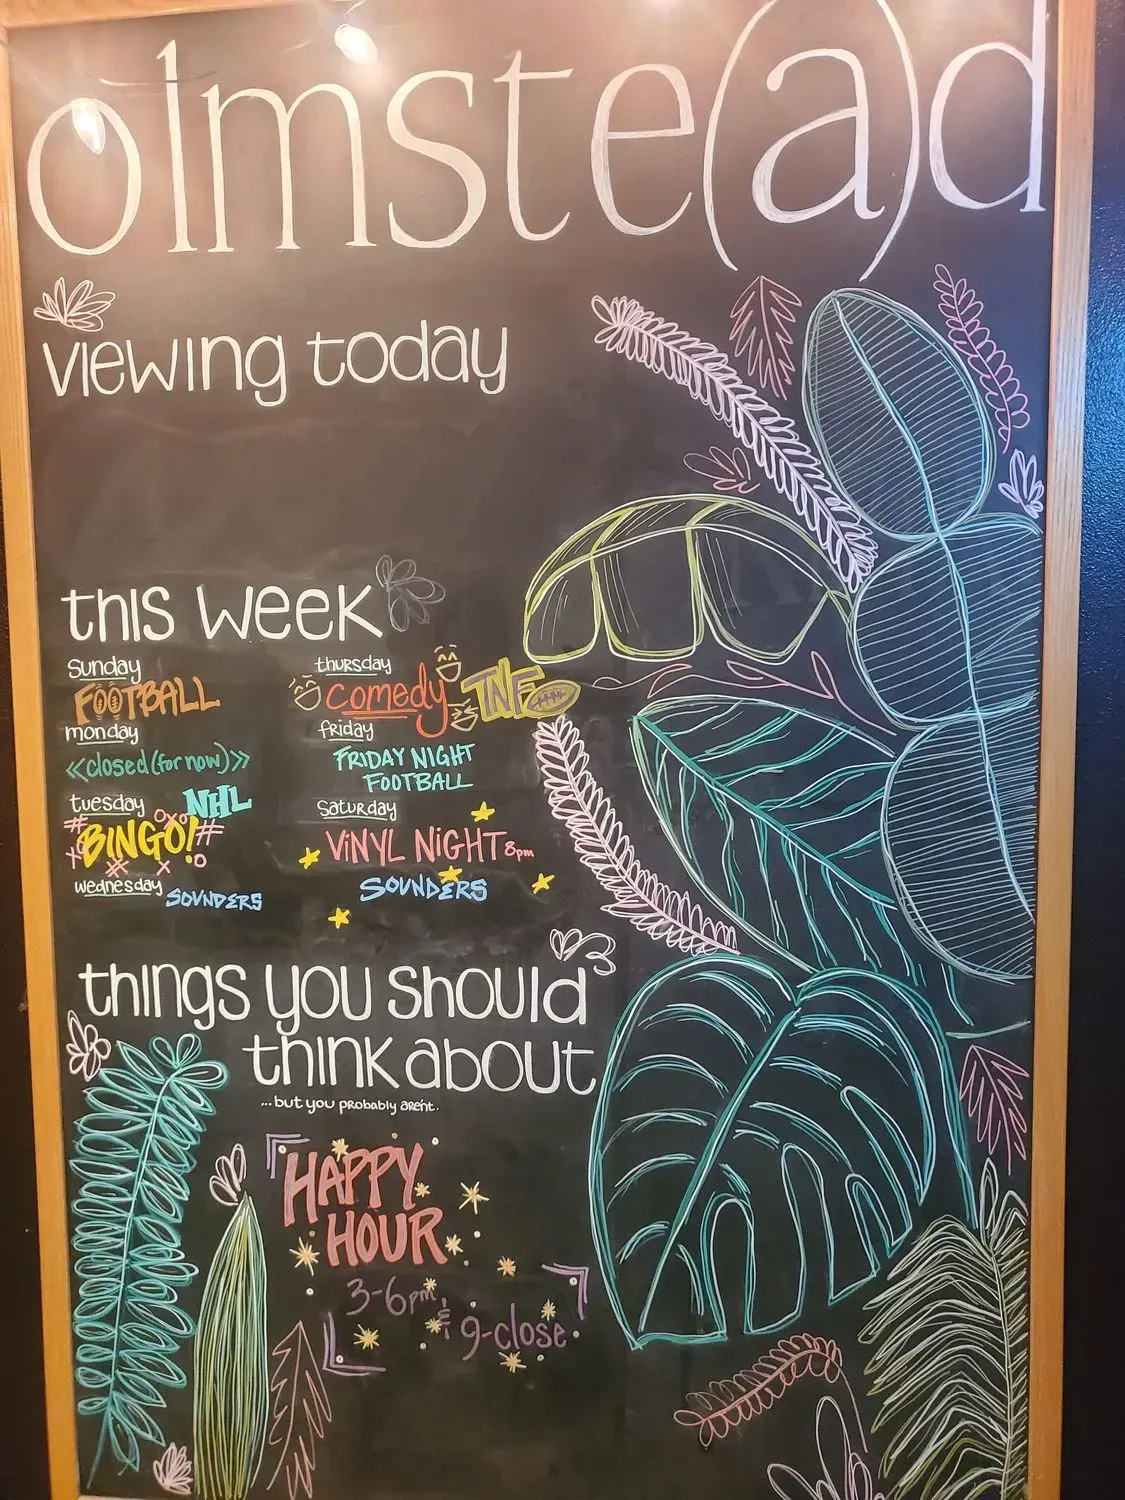 olmste(a)d
viewing today
this week
sunday
FOOTBALL
monday
<<closed (for now)>>
tuesday NHL
BINGO!
wednesday SOUNDERS
thursday
comedy TNF
friday
FRIDAY NIGHT
FOOTBALL
saturday
VINYL NIGHT 8pm
SOUNDERS
things you should
think about
...but you probably aren't.
HAPPY
HOUR
3-6pm
& 9-close